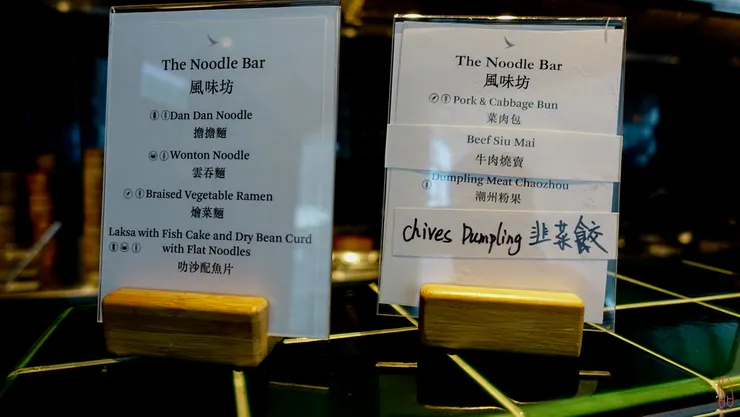 The Noodle Bar
風味坊
Dan Dan Noodle
擔擔麵
Wonton Noodle
雲吞麵
Braised Vegetable Ramen
燴菜麵
Laksa with Fish Cake and Dry Bean Curd
with Flat Noodles
叻沙配魚片
The Noodle Bar
風味坊
Pork & Cabbage Bun
菜肉包
Beef Siu Mai
牛肉燒賣
Dumpling Meat Chaozhou
潮州粉果
Chives Dumpling 韭菜餃